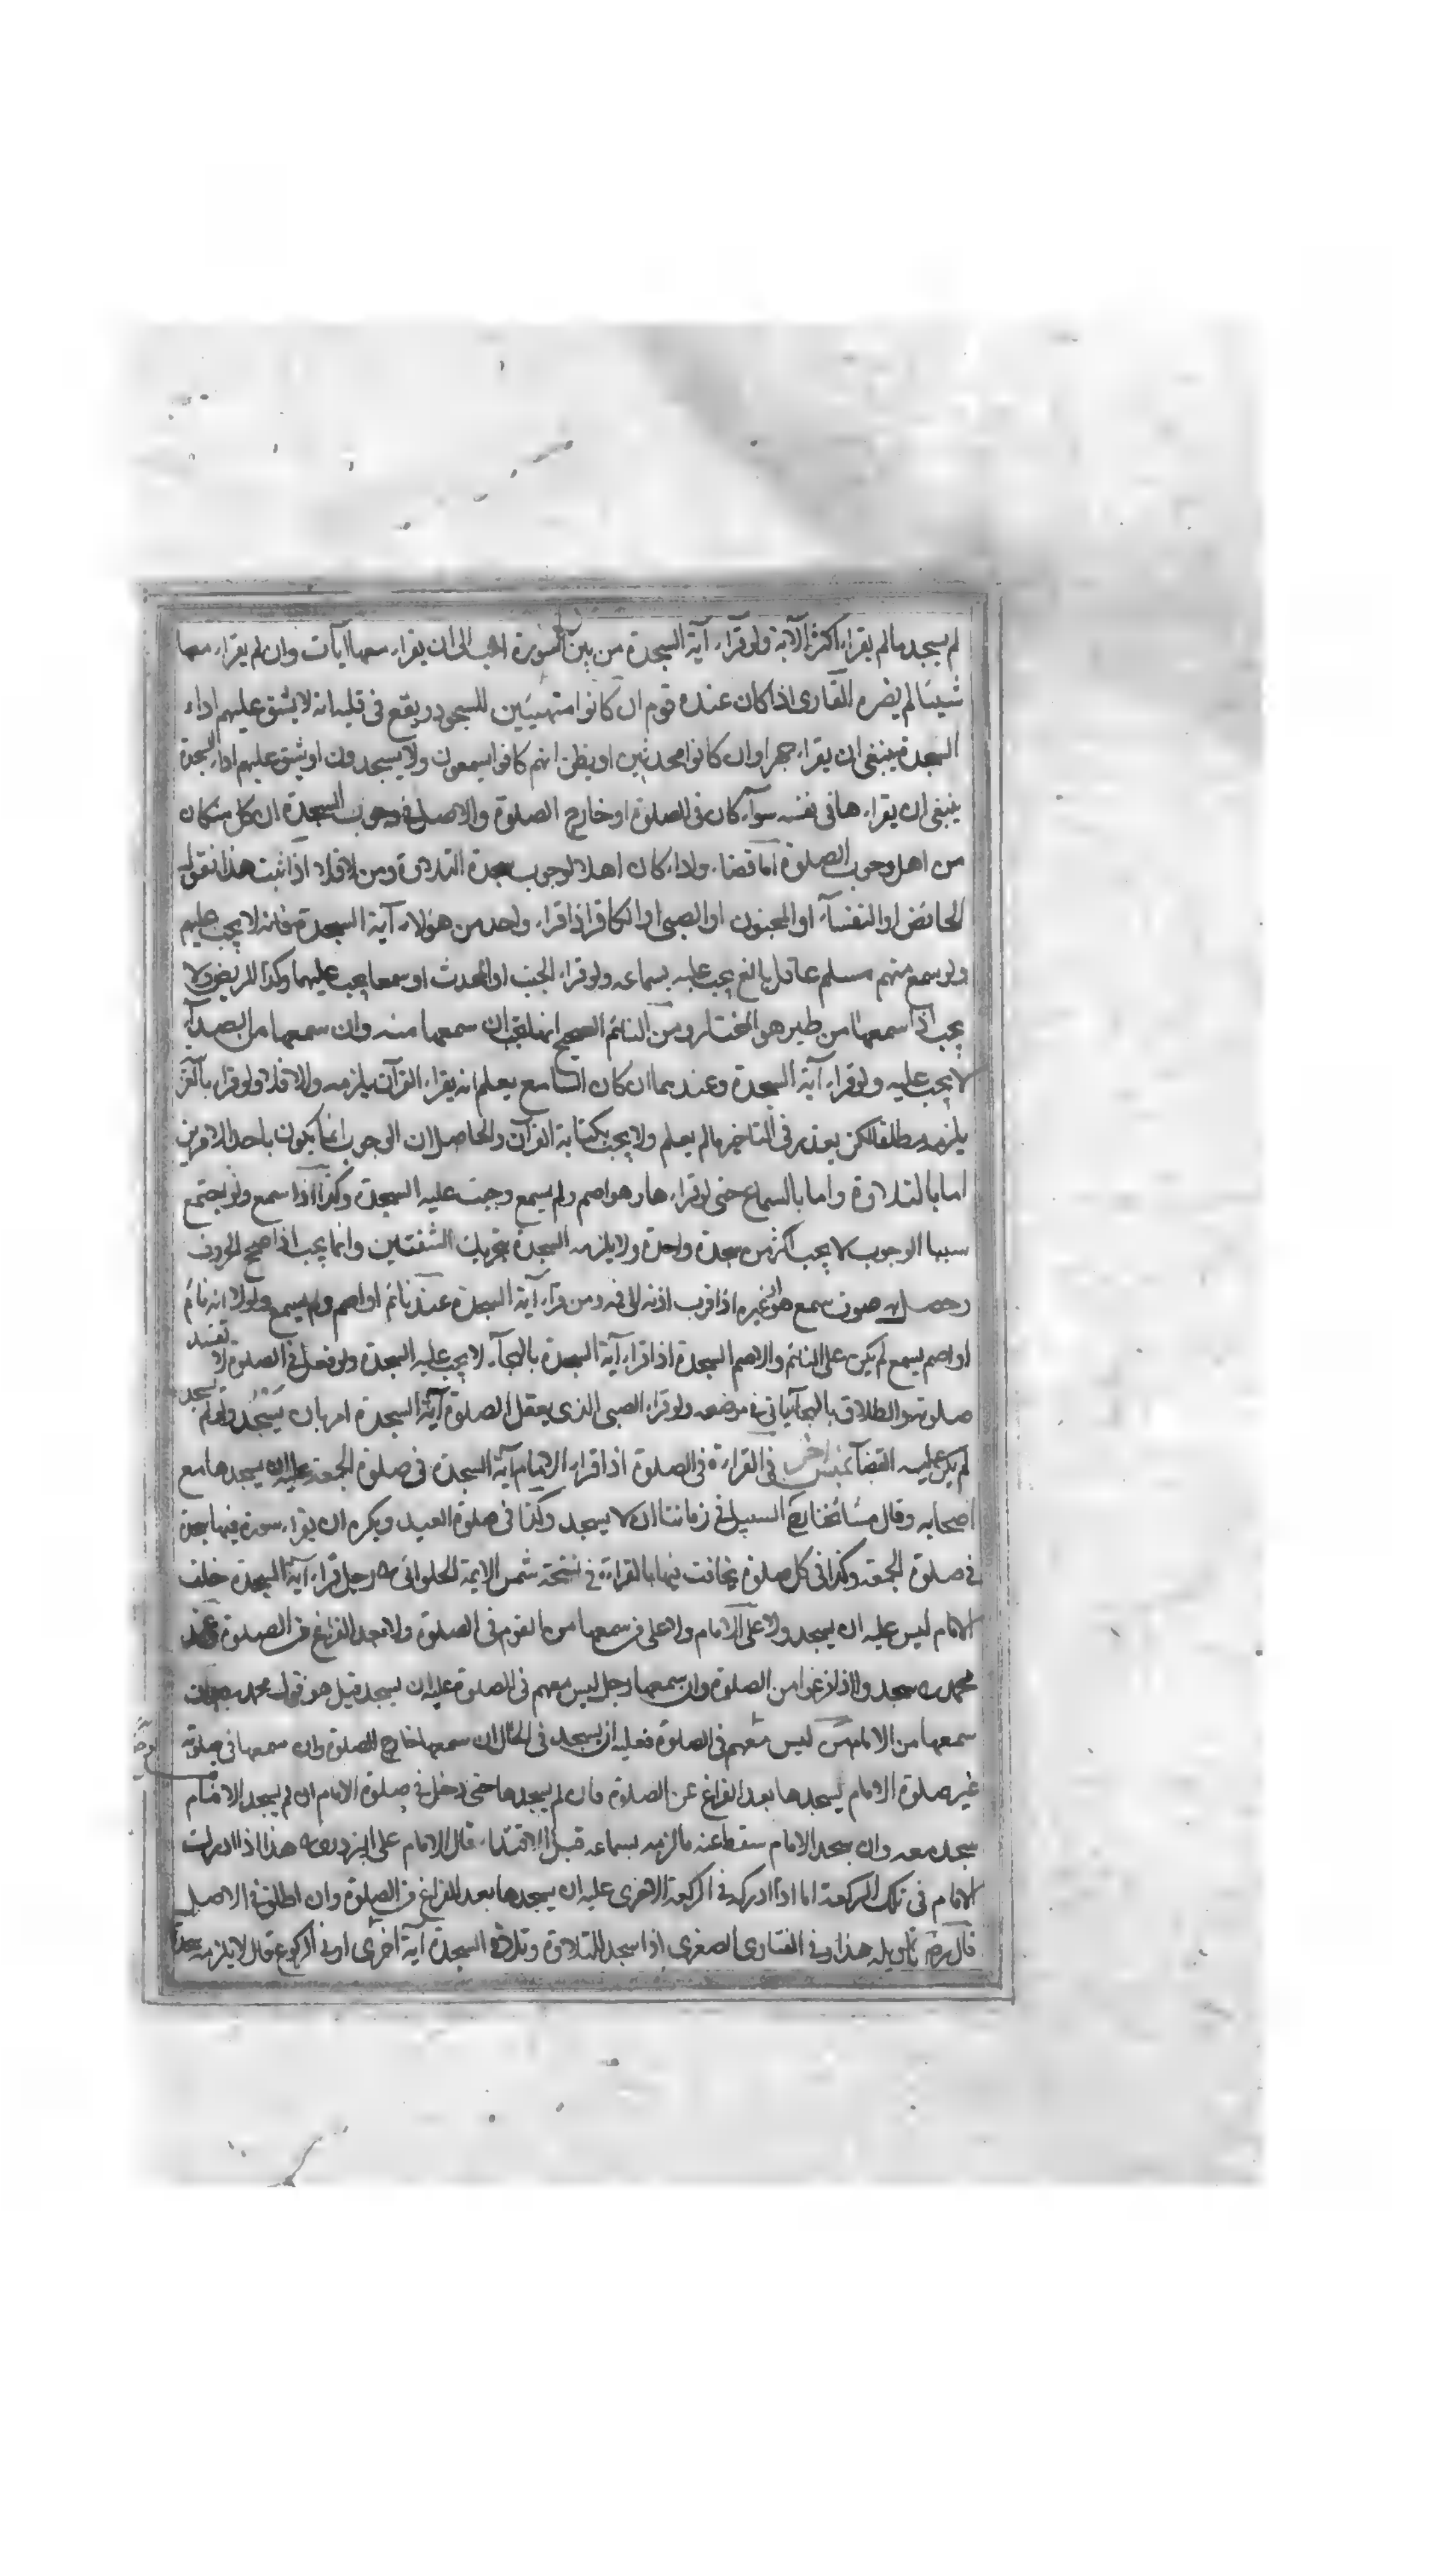 لم يسجد ما لم يقراء اكثر الآية ولو قراء آية السجدة من بين السورة احب الى ان يقراء معها آيات وان لم يقراء معها
شيئا لم يضره القارى اذا كان عنده قوم ان كانوا متهيئين للسجود ويقع فى قلبه انه لا يشق عليهم اداء
السجدة ينبغى ان يقراء جهرا وان كانوا محدثين او يظن انهم كانوا يسمعون ولا يسجدون او يشق عليهم اداء السجدة
ينبغى ان يقراءها فى نفسه سواء كان فى الصلوة او خارج الصلوة والاصل فى وجوب السجدة ان كل من كان
من اهل وجوب الصلوة اما قضاء واداء كان اهلا لوجوب سجدة التلاوة ومن لا فلا اذا ثبت هذا نقول
الحائض او النفساء او المجنون او الصبى او الكافر اذا قراء واحد من هولاء آية السجدة فانه لا يجب عليهم
ولو سمع منهم مسلم عاقل بالغ يجب عليه بسماعه ولو قراء الجنب او المحدث او سمعا يجب عليهما وكذا المريض ولا
يجب اذا سمعها من طير هو المختار ومن النائم الصحيح انها تجب ان سمعها منه وان سمعها من الصداء
لا يجب عليه ولو قراء آية السجدة وعندهما ان كان السامع يعلم انه يقراء القرآن يلزمه والا فلا ولو قراء بالعر
يلزمه مطلقا لكن يعذر فى التاخير ما لم يعلم ولا يجب بكتابة القرآن والحاصل ان الوجوب انما يكون باحد الامرين
اما بالتلاوة واما بالسماع حتى لو قراءها وهو اصم ولم يسمع وجبت عليه السجدة وكذا اذا سمع ولو يجتمع
سببا الوجوب لا يجب اكثر من سجدة واحدة ولا يلزمه السجدة بتحريك الشفتين وانما يجب اذا صحح الحروف
وحصل به صوت سمع هو او غيره اذا قرب اذنه الى فمه ومن قراء آية السجدة عند نائم او اصم ولم يسمع ولولا انه نائم
او اصم يسمع لم يكن على النائم والاصم السجدة اذا قراء آية السجدة بالهجاء لا يجب عليه السجدة ولو فعل فى الصلوة لا تفسد
صلوته والطلاق بالهجاء ياتى فى موضعه ولو قراء الصبى الذى يعقل الصلوة آية السجدة امر بان يسجد ولو لم يسجد
لم يكن عليه القضاء جنس اخر فى القراءة فى الصلوة اذا قراء الامام آية السجدة فى صلوة الجمعة عليه ان يسجدها مع
اصحابه وقال مشائخنا السبيل فى زماننا ان لا يسجد وكذا فى صلوة العيد ويكره ان يقراء سورة فيها سجدة
فى صلوة الجمعة وكذا فى كل صلوة يخافت فيها بالقراءة فى نسخة شمس الايمة الحلوانى رجل قراء آية السجدة خلف
الامام ليس عليه ان يسجد ولا على الامام ولا على من سمعها من القوم فى الصلوة ولا بعد الفراغ من الصلوة وعند
محمد يسجد واذا فرغوا من الصلوة وان سمعها رجل ليس معهم فى الصلوة عليه ان يسجد قيل هو قول محمد
سمعها من الامام من ليس معهم فى الصلوة فعليه ان يسجد فى الحال ان سمعها خارج الصلوة وان سمعها فى صلوته
غير صلوة الامام يسجدها بعد الفراغ عن الصلوة فان لم يسجدها حتى دخل فى صلوة الامام ان لم يسجد الامام
سجد معه وان سجد الامام سقط عنه ما لزمه بسماعه قبل الاقتداء قال الامام على البزدوى هذا اذا ادرك
الامام فى تلك الركعة اما اذا ادركه فى الركعة الاخرى عليه ان يسجدها بعد الفراغ من الصلوة وان اطلق فى الاصل
قال تاويله هذا وفى الفتاوى الصغرى اذا سجد للتلاوة وتلا فى السجدة آية اخرى او فى الركوع قال لا يلزمه سجدة